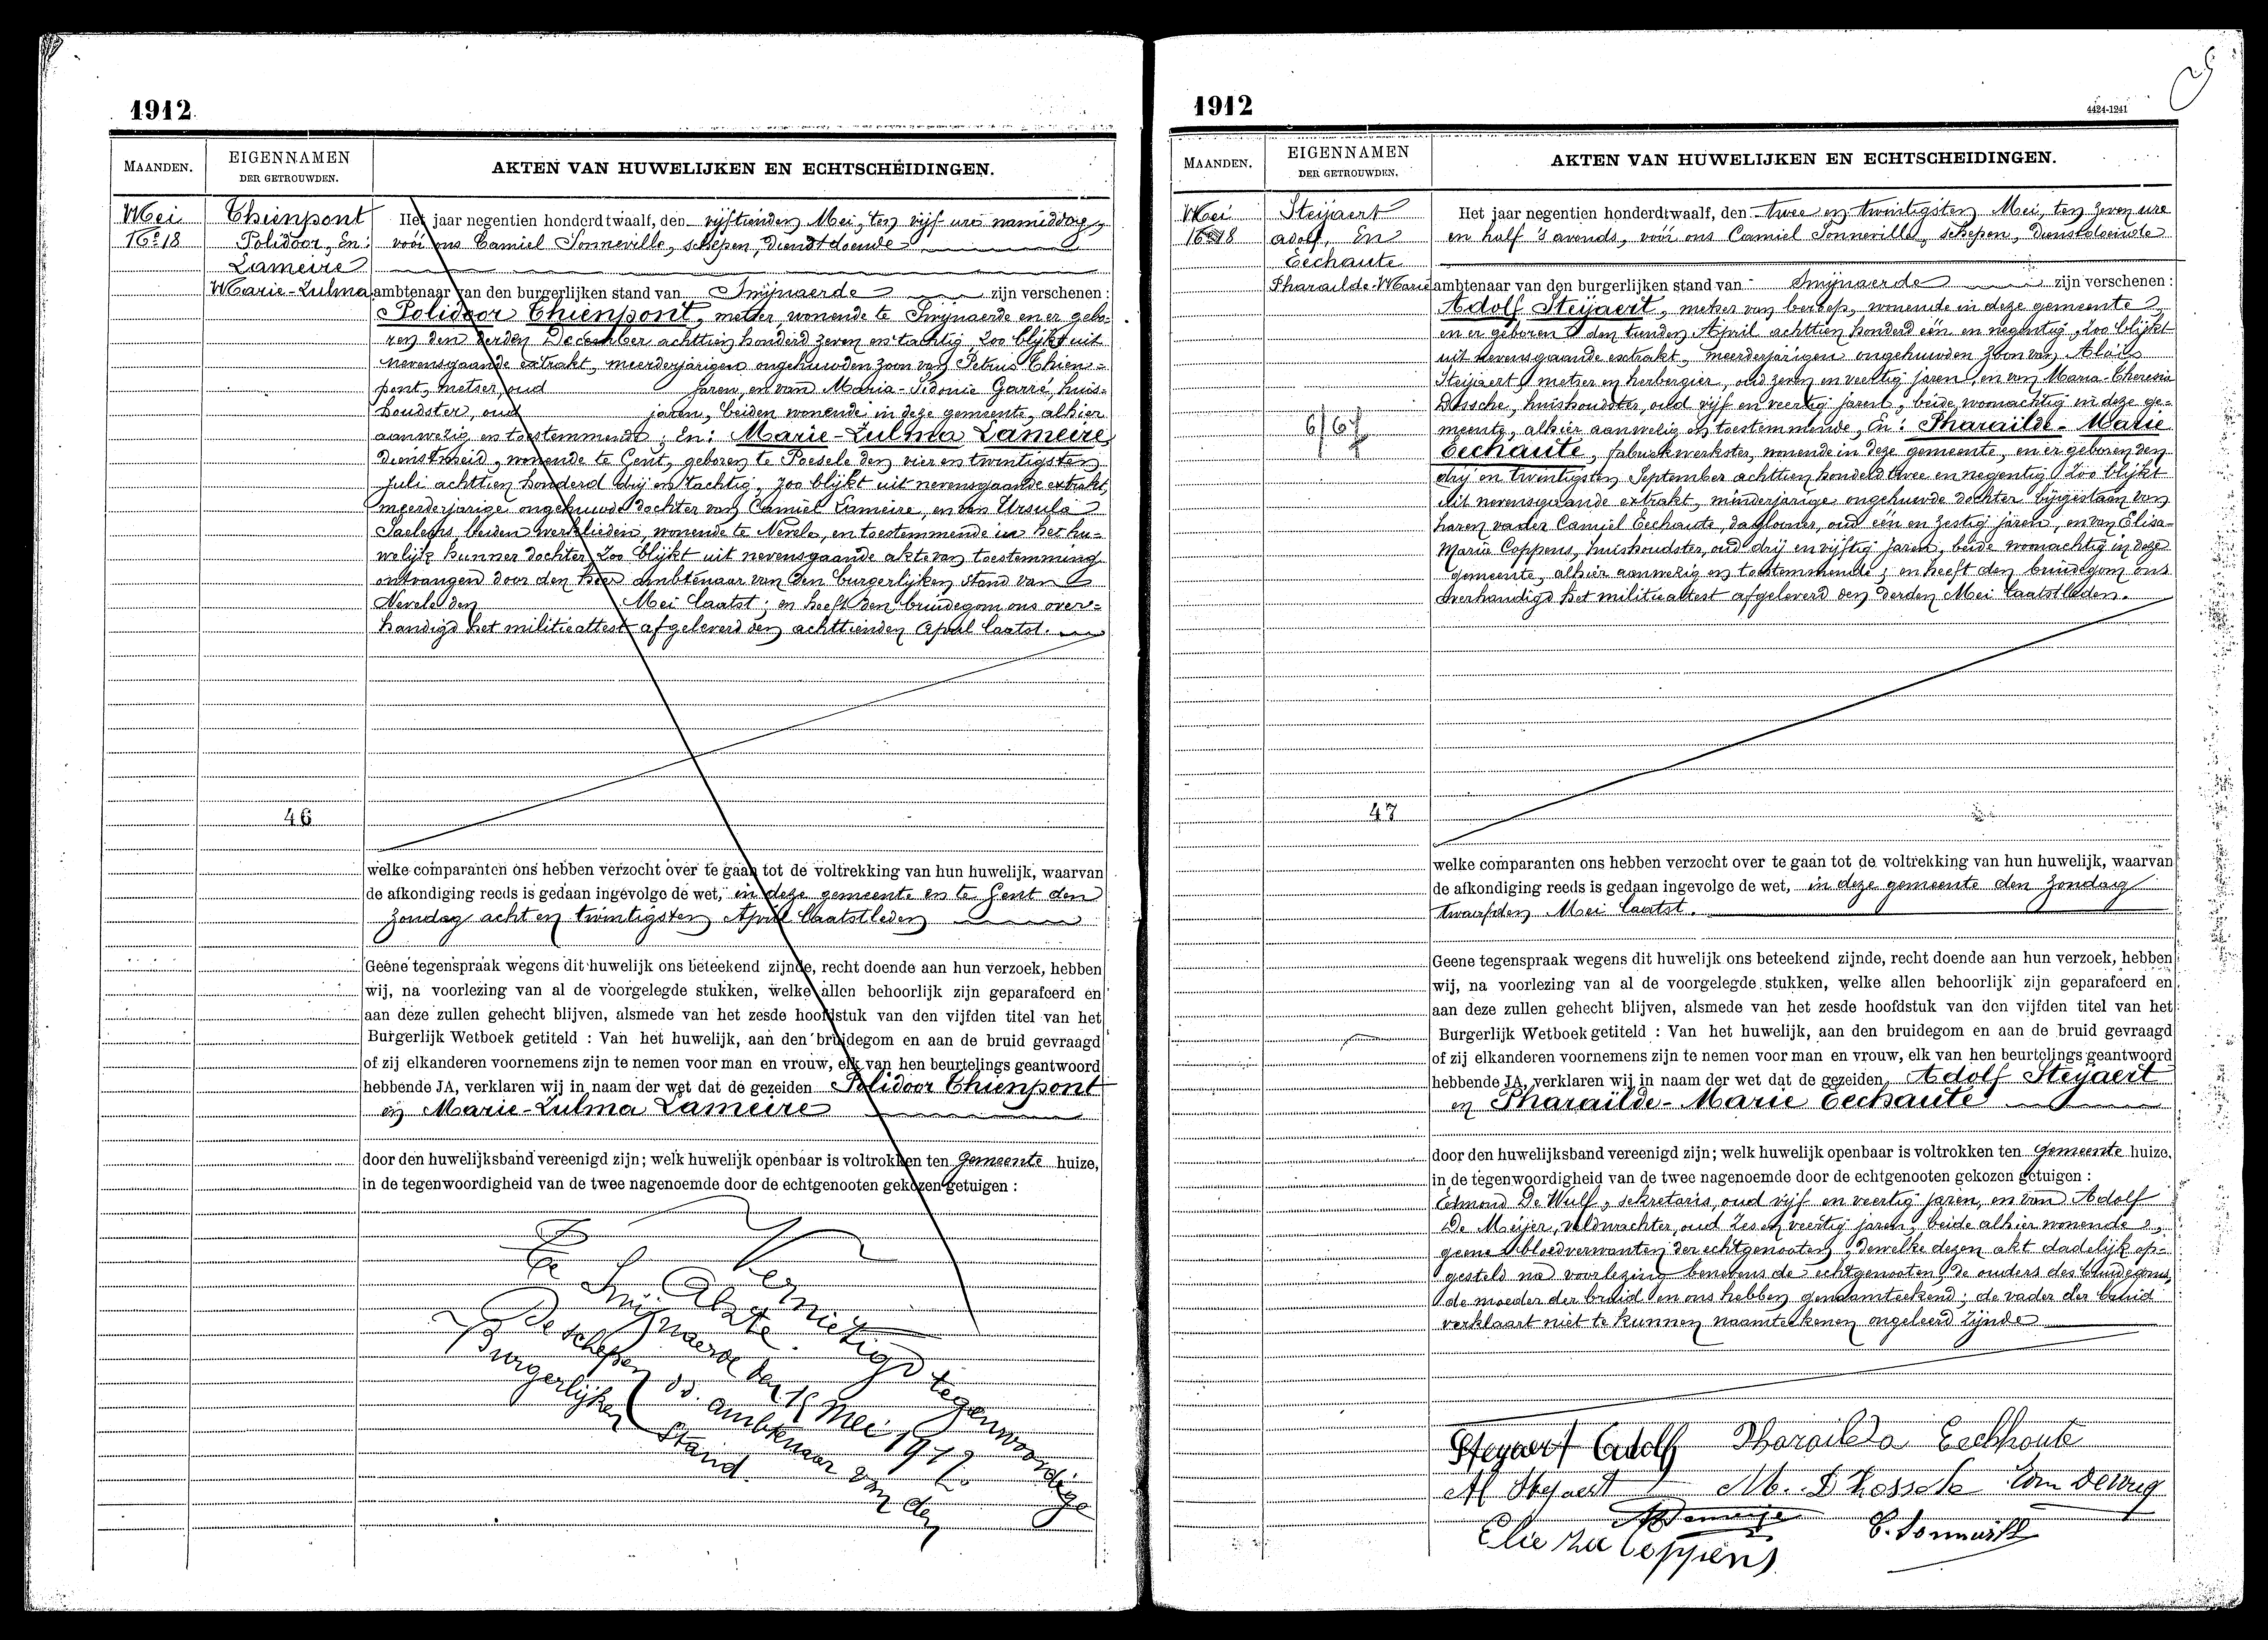 1912
MAANDEN.
EIGENNAMEN
DER GETROUWDEN.
AKTEN VAN HUWELIJKEN EN ECHTSCHEIDINGEN.
Mei
Nº 18
Thienpont
Polidoor, En:
Lameire
Marie-Zulma
Het jaar negentien honderdtwaalf, den vijftienden Mei, ten vijf ure namiddag,
vóór ons Camiel Sonneville, schepen, dienstdoende
ambtenaar van den burgerlijken stand van Swijnaerde zijn verschenen:
Polidoor Thienpont, metser, wonende te Swijnaerde en er gebo-
ren den derden December achttien honderd zeven en tachtig, zoo blijkt uit
nevensgaande extrakt, meerderjarigen ongehuwden zoon van Petrus Thien-
pont, metser, oud jaren, en van Maria-Sidonie Garré, huis-
houdster, oud jaren, beiden wonende in deze gemeente, alhier
aanwezig en toestemmende; En: Marie-Zulma Lameire,
dienstmeid, wonende te Gent, geboren te Poesele den vier en twintigsten
Juli achttien honderd drij en tachtig, zoo blijkt uit nevensgaande extrakt,
meerderjarige ongehuwde dochter van Camiel Lameire, en van Ursula
Saelens, beiden werklieden, wonende te Nevele, en toestemmende in het hu-
welijk hunner dochter, zoo blijkt uit nevensgaande akte van toestemming
ontvangen door den heer ambtenaar van den burgerlijken stand van
Nevele den Mei laatst; en heeft den bruidegom ons over-
handigd het militieattest afgeleverd den achttienden April laatst.
46
welke comparanten ons hebben verzocht over te gaan tot de voltrekking van hun huwelijk, waarvan
de afkondiging reeds is gedaan ingevolge de wet, in deze gemeente en te Gent den
Zondag acht en twintigsten April laatstleden
Geene tegenspraak wegens dit huwelijk ons beteekend zijnde, recht doende aan hun verzoek, hebben
wij, na voorlezing van al de voorgelegde stukken, welke allen behoorlijk zijn geparafeerd en
aan deze zullen gehecht blijven, alsmede van het zesde hoofdstuk van den vijfden titel van het
Burgerlijk Wetboek getiteld : Van het huwelijk, aan den bruidegom en aan de bruid gevraagd
of zij elkanderen voornemens zijn te nemen voor man en vrouw, elk van hen beurtelings geantwoord
hebbende JA, verklaren wij in naam der wet dat de gezeiden Polidoor Thienpont
en Marie-Zulma Lameire
door den huwelijksband vereenigd zijn; welk huwelijk openbaar is voltrokken ten gemeente huize,
in de tegenwoordigheid van de twee nagenoemde door de echtgenooten gekozen getuigen :
Vernietigd tegenwoordige
Akte.
Te Swijnaerde den 18 Mei 1912.
De schepen dd. ambtenaar van den
Burgerlijken Stand.
1912
4424-1241
MAANDEN.
EIGENNAMEN
DER GETROUWDEN.
AKTEN VAN HUWELIJKEN EN ECHTSCHEIDINGEN.
Mei
Nº 18
Steijaert
Adolf, En
Eechaute
Pharaïlde-Marie
6/67
Het jaar negentien honderdtwaalf, den twee en twintigsten Mei, ten zeven ure
en half 's avonds, vóór ons Camiel Sonneville, schepen, dienstdoende
ambtenaar van den burgerlijken stand van Swijnaerde zijn verschenen :
Adolf Steijaert, metser van beroep, wonende in deze gemeente
en er geboren den tienden April achttien honderd één en negentig, zoo blijkt
uit nevensgaande extrakt, meerderjarigen ongehuwden zoon van Aloïs
Steijaert, metser en herbergier, oud zeven en veertig jaren, en van Maria-Theresia
Dossche, huishoudster, oud vijf en veertig jaren, beide woonachtig in deze ge-
meente, alhier aanwezig en toestemmende, En: Pharaïlde-Marie
Eechaute, fabriekwerkster, wonende in deze gemeente, en er geboren den
drij en twintigsten September achttien honderd twee en negentig, zoo blijkt
uit nevensgaande extrakt, minderjarige ongehuwde dochter bijgestaan van
haren vader Camiel Eechaute, daglooner, oud één en zestig jaren, en van Elisa-
Maria Coppens, huishoudster, oud drij en vijftig jaren, beide woonachtig in deze
gemeente, alhier aanwezig en toestemmende; en heeft den bruidegom ons
overhandigd het militieattest afgeleverd den derden Mei laatstleden.
47
welke comparanten ons hebben verzocht over te gaan tot de voltrekking van hun huwelijk, waarvan
de afkondiging reeds is gedaan ingevolge de wet, in deze gemeente den Zondag
twaalfden Mei laatst.
Geene tegenspraak wegens dit huwelijk ons beteekend zijnde, recht doende aan hun verzoek, hebben
wij, na voorlezing van al de voorgelegde stukken, welke allen behoorlijk zijn geparafeerd en
aan deze zullen gehecht blijven, alsmede van het zesde hoofdstuk van den vijfden titel van het
Burgerlijk Wetboek getiteld : Van het huwelijk, aan den bruidegom en aan de bruid gevraagd
of zij elkanderen voornemens zijn te nemen voor man en vrouw, elk van hen beurtelings geantwoord
hebbende JA, verklaren wij in naam der wet dat de gezeiden Adolf Steyaert
en Pharaïlde-Marie Eechaute
door den huwelijksband vereenigd zijn; welk huwelijk openbaar is voltrokken ten gemeente huize,
in de tegenwoordigheid van de twee nagenoemde door de echtgenooten gekozen getuigen :
Edmond De Wulf, sekretaris, oud vijf en veertig jaren, en van Adolf
De Meijer, veldwachter, oud zes en veertig jaren, beide alhier wonende,
geene bloedverwanten der echtgenooten, dewelke dezen akt dadelijk op-
gesteld na voorlezing benevens de echtgenooten, de ouders des bruidegoms,
de moeder der bruid en ons hebben genaamteekend; de vader der bruid
verklaart niet te kunnen naamteekenen ongeleerd zijnde
Steyaert Adolf Pharailda Eeckhoute
Al Steyaert M. D Hossche Edm Dewulf
C. Sonneville
Coppens